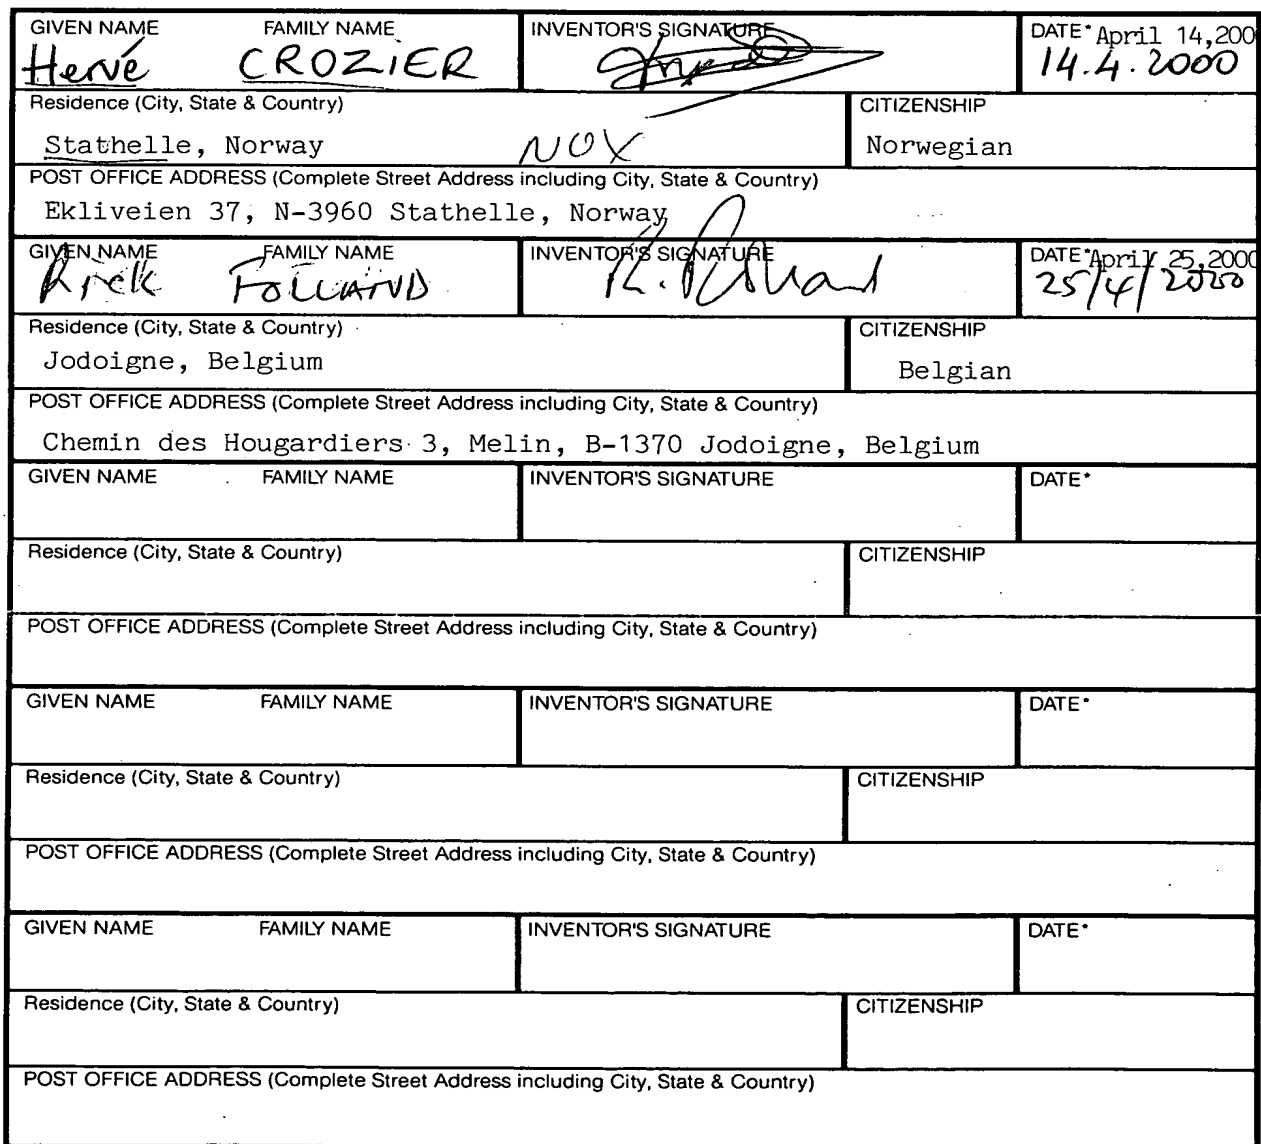 GIVEN NAME FAMILY NAME INVENTOR'S SIGNATURE DATE* April 14,200
Hervé CROZIER 14.4.2000
Residence (City, State & Country) CITIZENSHIP
Stathelle, Norway NOX Norwegian
POST OFFICE ADDRESS (Complete Street Address including City, State & Country)
Ekliveien 37, N-3960 Stathelle, Norway
GIVEN NAME FAMILY NAME INVENTOR'S SIGNATURE DATE* April 25,2000
Rick FOLLAND R. Folland 25/4/2000
Residence (City, State & Country) CITIZENSHIP
Jodoigne, Belgium Belgian
POST OFFICE ADDRESS (Complete Street Address including City, State & Country)
Chemin des Hougardiers 3, Melin, B-1370 Jodoigne, Belgium
GIVEN NAME FAMILY NAME INVENTOR'S SIGNATURE DATE*
Residence (City, State & Country) CITIZENSHIP
POST OFFICE ADDRESS (Complete Street Address including City, State & Country)
GIVEN NAME FAMILY NAME INVENTOR'S SIGNATURE DATE*
Residence (City, State & Country) CITIZENSHIP
POST OFFICE ADDRESS (Complete Street Address including City, State & Country)
GIVEN NAME FAMILY NAME INVENTOR'S SIGNATURE DATE*
Residence (City, State & Country) CITIZENSHIP
POST OFFICE ADDRESS (Complete Street Address including City, State & Country)